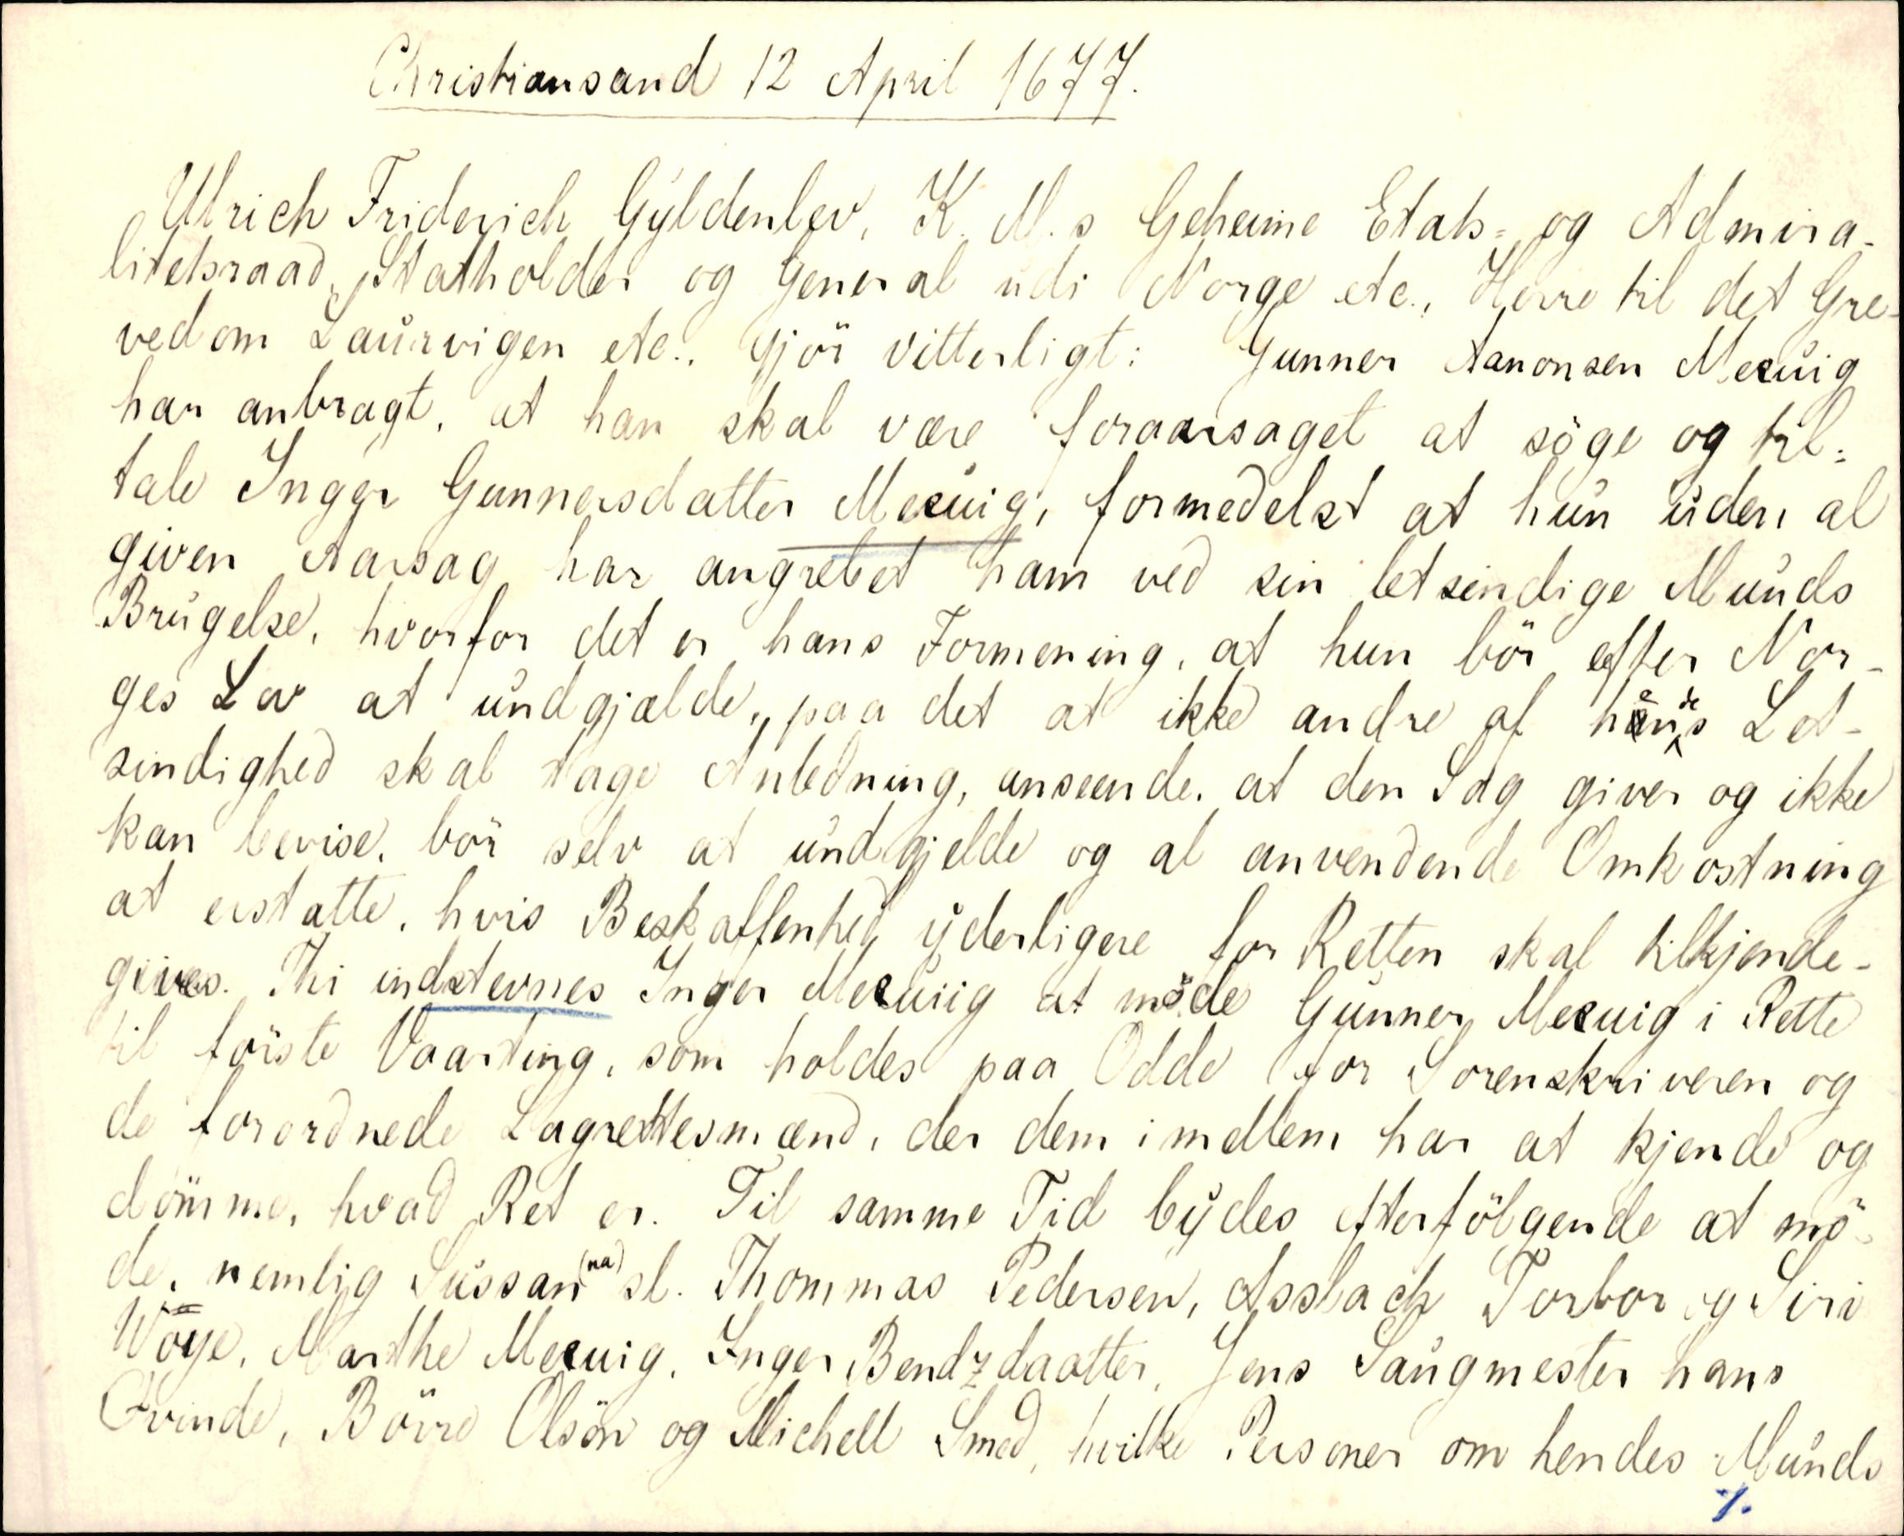 Christiansand 12 April 1677.
Ulrich Friderich Gyldenlev, K. M.s Geheime Etats- og Admira-
litetsraad, Statholder og General udi Norge etc., Herre til det Gre-
vedom Laurvigen etc., Gjör vitterligt: Gunner Aanonsen Mervig
har anbragt, at han skal være foraarsaget at söge og til-
tale Inger Gunnersdatter Mervig, formedelst at hun uden al
given Aarsag har angrebet ham ved sin letsindige Munds
Brugelse, hvorfor det er hans Formening, at hun bör efter Nor-
ges Lov at undgjælde, paa det at ikke andre af hendes Let-
sindighed skal tage Anledning, anseende, at den Sag giver og ikke
kan bevise, bör selv at undgjelde og al anvendende Omkostning
at erstatte, hvis Beskaffenhed yderligere for Retten skal tilkjende-
gives. Thi indstevnes Inger Meruiig at möde Gunner Meruig i Rette
til förste Vaarting, som holdes paa Odde for Sorenskriveren og
de forordnede Lagrettesmænd, der dem imellem har at kjende og
dömme, hvad Ret er. Til samme Tid bydes efterfölgende at mö-
de, nemlig Sussan(na) sl. Thommas Pedersen, Asslach Torbor og Siri
Wöye, Marthe Meruig, Inger Bendzdaatter, Jens Saugmester hans
Qvinde, Börre Olsön og Michell Smed, hvilke Personer om hendes Munds
%.